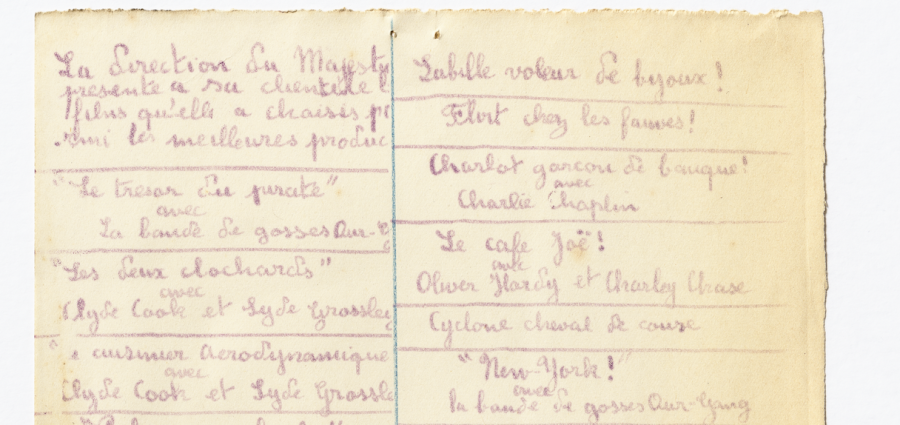 La direction du Majest
présente à sa clientèle l
films qu'elle a choisis p
rmi les meilleures produc
"Le tresor du pirate"
avec
La bande de gosses Our-
"Les deux clochards"
avec
Clyde Cook et Lyde Grossley
cuisinier Aerodynamique
avec
Clyde Cook et Lyde Grossle
Labille voleur de bijoux!
Flirt chez les fauves!
Charlot garcon de banque!
avec
Charlie Chaplin
Le cafe Joë!
avec
Oliver Hardy et Charley Chase
Cyclone cheval de course
"New-York!"
avec
la bande de gosses Our-Gang